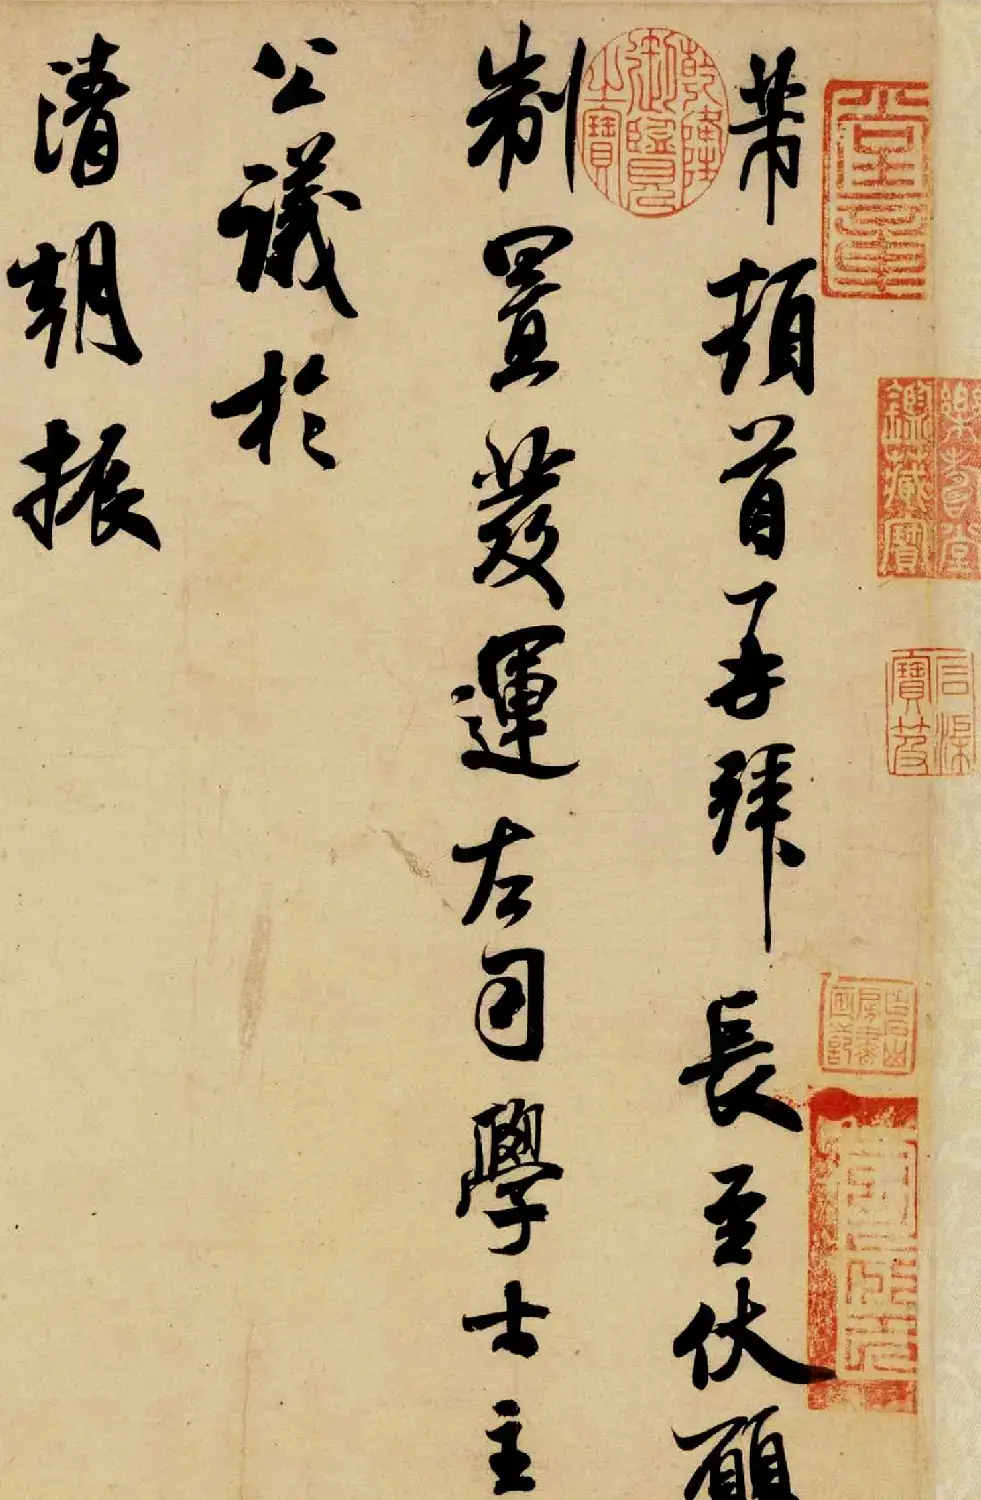 樂壽堂鑑藏寶
石渠寶笈
芾頓首再拜長至伏願
乾隆御覽之寶
制置發運左司學士主
公議於
清朝振